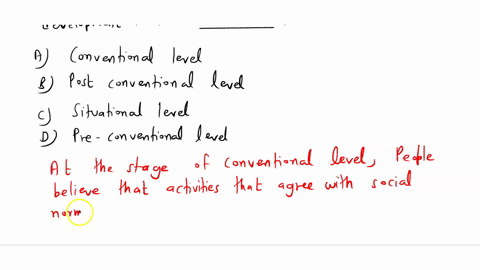 Development
A) Conventional level
B) Post conventional level
C) Situational level
D) Pre-conventional level
At the stage of conventional level, People
believe that activities that agree with social
norm